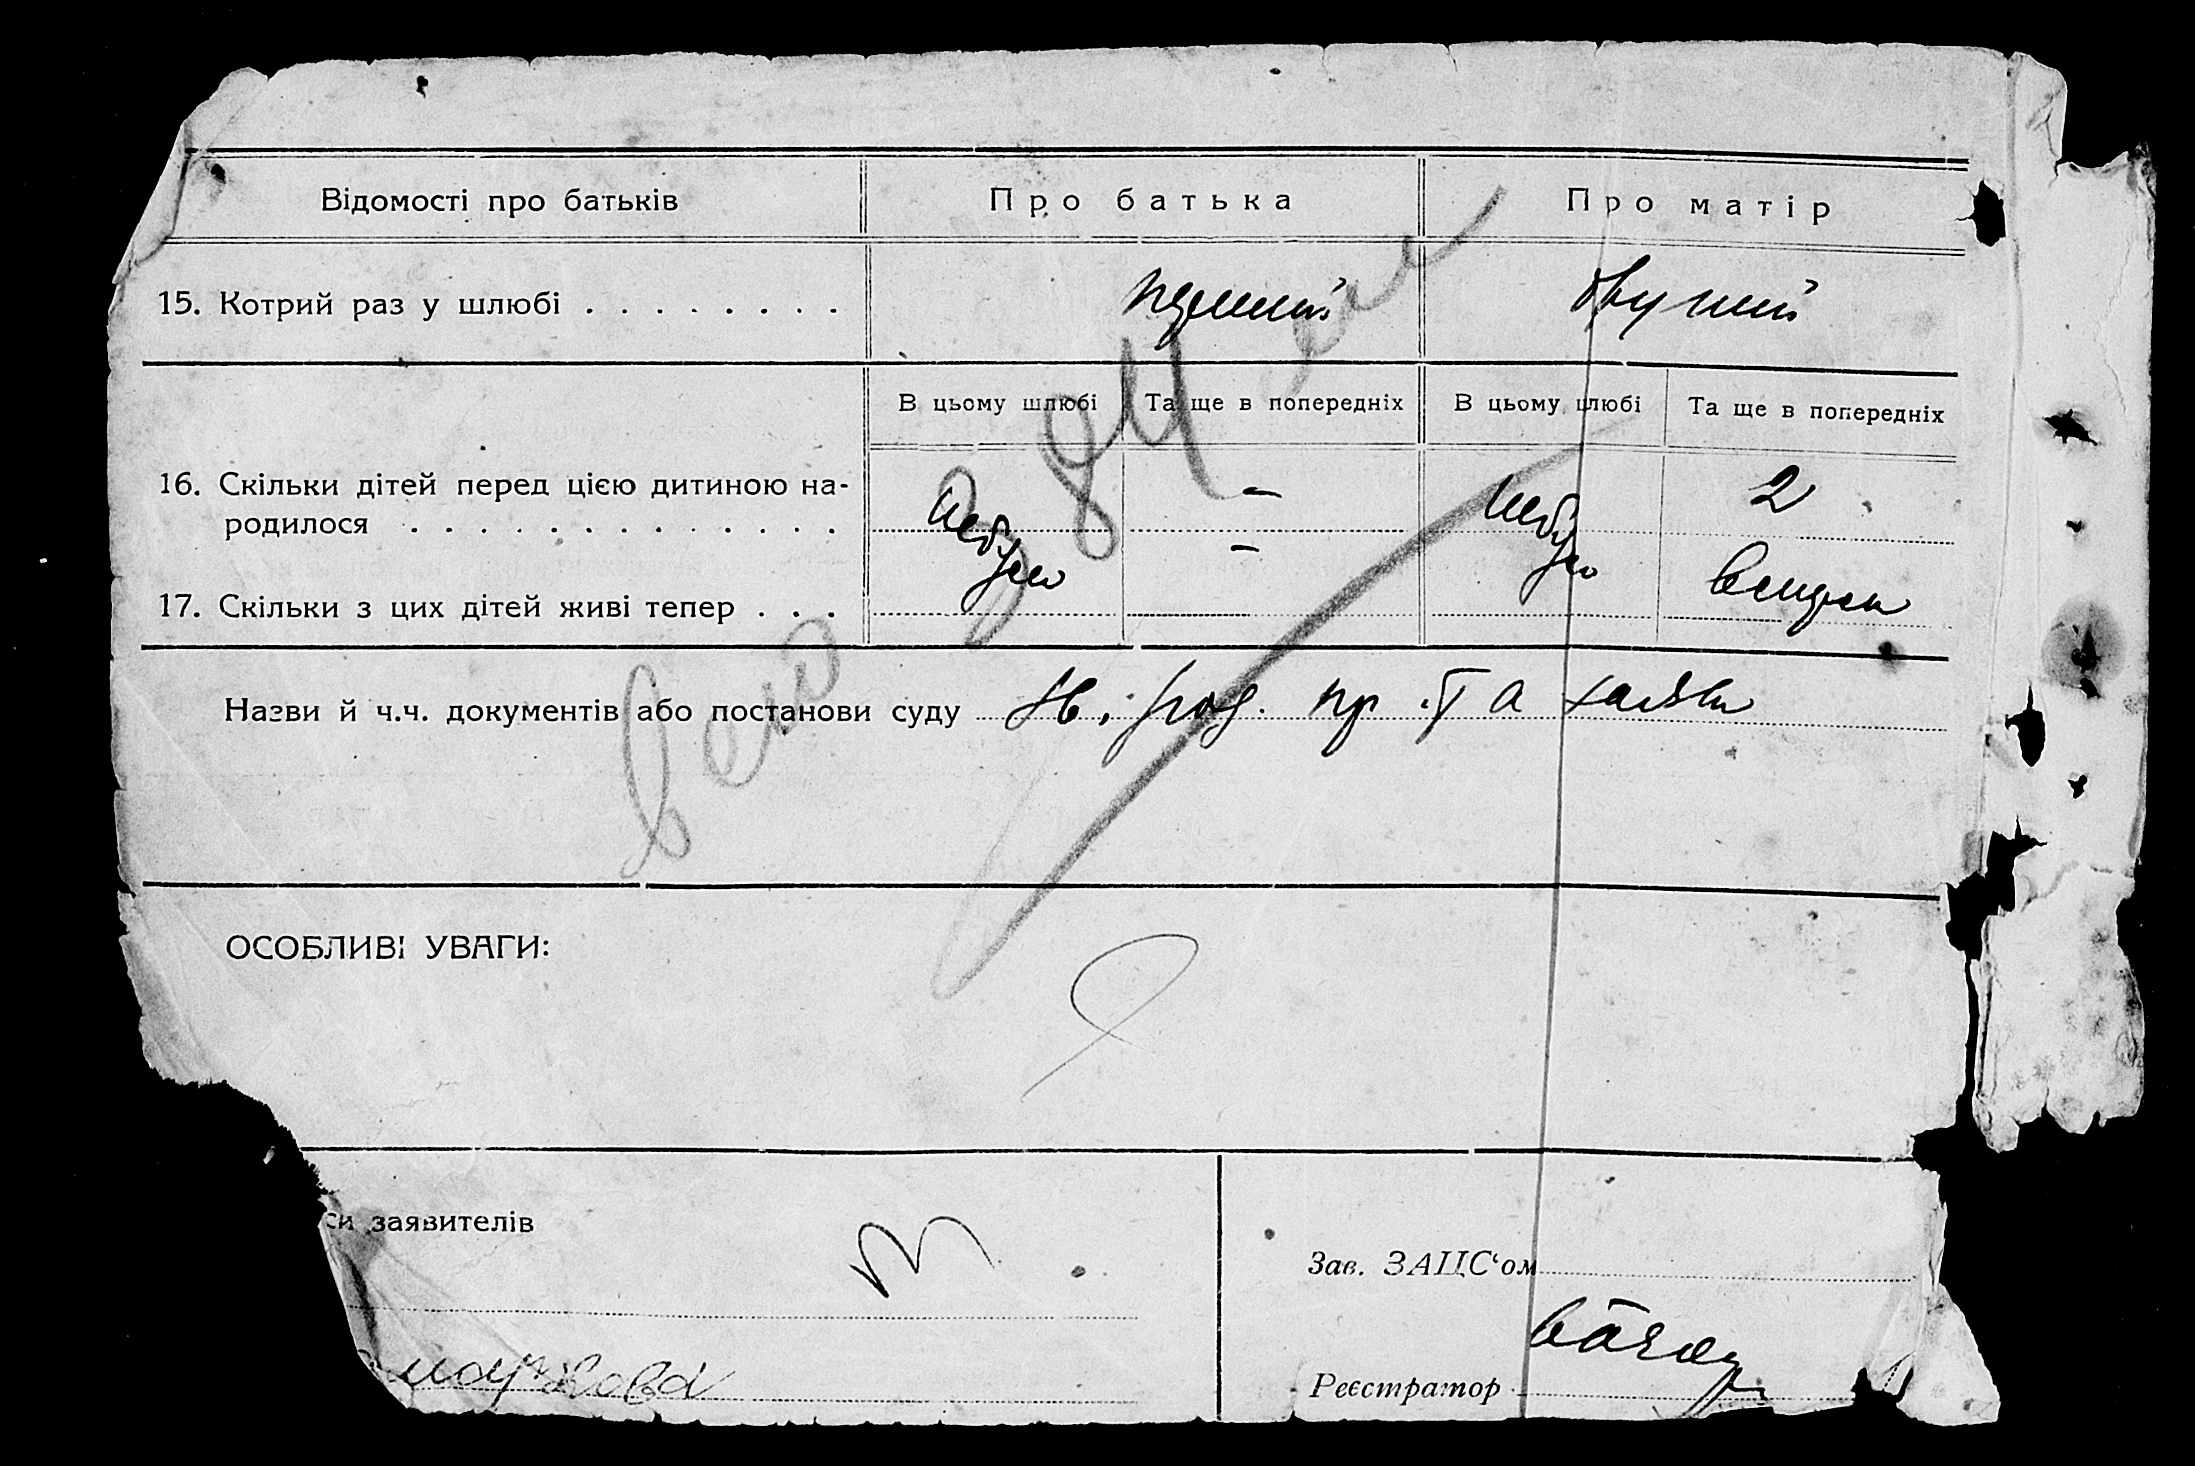 Відомості про батьків Про батька Про матір
15. Котрий раз у шлюбі . . . . . . . . . перший другий
В цьому шлюбі Та ще в попередніх В цьому шлюбі Та ще в попередніх
16. Скільки дітей перед цією дитиною на-
родилося . . . . . . . . . . . . . . небуло – небуло 2
17. Скільки з цих дітей живі тепер . . . – вмерли
Назви й ч.ч. документів або постанови суду та заяви
ОСОБЛИВІ УВАГИ:
си заявителів
Зав. ЗАЦС‘ом
Реєстратор